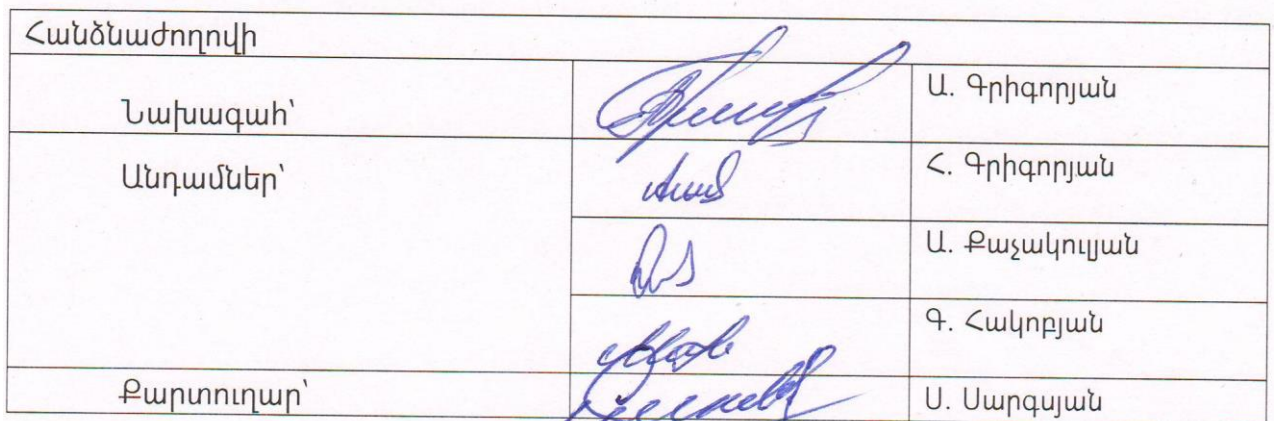 Հանձնաժողովի
Նախագահ՝ Ա. Գրիգորյան
Անդամներ՝ Հ. Գրիգորյան
Ա. Քաչակուլյան
Գ. Հակոբյան
Քարտուղար՝ Ս. Սարգսյան